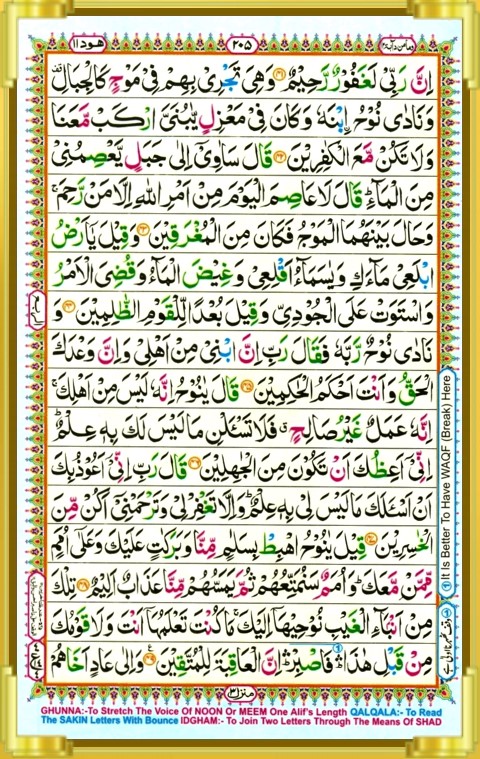 هود ١١ ٢٠٥ ومامن دآبة ١٢
اِنَّ رَبِّیْ لَغَفُوْرٌ رَّحِیْمٌ ﴿۴۱﴾ وَهِیَ تَجْرِیْ بِهِمْ فِیْ مَوْجٍ كَالْجِبَالِ
وَنَادٰی نُوْحُ اِۨبْنَهٗ وَكَانَ فِیْ مَعْزِلٍ یّٰبُنَیَّ ارْكَبْ مَّعَنَا
وَلَا تَكُنْ مَّعَ الْكٰفِرِیْنَ ﴿۴۲﴾ قَالَ سَاٰوِیْۤ اِلٰی جَبَلٍ یَّعْصِمُنِیْ
مِنَ الْمَآءِ ؕ قَالَ لَا عَاصِمَ الْیَوْمَ مِنْ اَمْرِ اللّٰهِ اِلَّا مَنْ رَّحِمَ ۚ
وَحَالَ بَیْنَهُمَا الْمَوْجُ فَكَانَ مِنَ الْمُغْرَقِیْنَ ﴿۴۳﴾ وَقِیْلَ یٰۤاَرْضُ
ابْلَعِیْ مَآءَكِ وَیٰسَمَآءُ اَقْلِعِیْ وَغِیْضَ الْمَآءُ وَقُضِیَ الْاَمْرُ
وَاسْتَوَتْ عَلَی الْجُوْدِیِّ وَقِیْلَ بُعْدًا لِّلْقَوْمِ الظّٰلِمِیْنَ ﴿۴۴﴾ وَ
نَادٰی نُوْحٌ رَّبَّهٗ فَقَالَ رَبِّ اِنَّ ابْنِیْ مِنْ اَهْلِیْ وَاِنَّ وَعْدَكَ
الْحَقُّ وَاَنْتَ اَحْكَمُ الْحٰكِمِیْنَ ﴿۴۵﴾ قَالَ یٰنُوْحُ اِنَّهٗ لَیْسَ مِنْ اَهْلِكَ ۚ
اِنَّهٗ عَمَلٌ غَیْرُ صَالِحٍ ۖ فَلَا تَسْـَٔلْنِ مَا لَیْسَ لَكَ بِهٖ عِلْمٌ ؕ
اِنِّیْۤ اَعِظُكَ اَنْ تَكُوْنَ مِنَ الْجٰهِلِیْنَ ﴿۴۶﴾ قَالَ رَبِّ اِنِّیْۤ اَعُوْذُ بِكَ
اَنْ اَسْـَٔلَكَ مَا لَیْسَ لِیْ بِهٖ عِلْمٌ ؕ وَاِلَّا تَغْفِرْ لِیْ وَتَرْحَمْنِیْۤ اَكُنْ مِّنَ
الْخٰسِرِیْنَ ﴿۴۷﴾ قِیْلَ یٰنُوْحُ اهْبِطْ بِسَلٰمٍ مِّنَّا وَبَرَكٰتٍ عَلَیْكَ وَعَلٰۤی اُمَمٍ
مِّمَّنْ مَّعَكَ ؕ وَاُمَمٌ سَنُمَتِّعُهُمْ ثُمَّ یَمَسُّهُمْ مِّنَّا عَذَابٌ اَلِیْمٌ ﴿۴۸﴾ تِلْكَ
مِنْ اَنْۢبَآءِ الْغَیْبِ نُوْحِیْهَاۤ اِلَیْكَ ۚ مَا كُنْتَ تَعْلَمُهَاۤ اَنْتَ وَلَا قَوْمُكَ
مِنْ قَبْلِ هٰذَا ۛؕ فَاصْبِرْ ۛؕ اِنَّ الْعَاقِبَةَ لِلْمُتَّقِیْنَ ﴿۴۹﴾ وَاِلٰی عَادٍ اَخَاهُمْ
الربع
It Is Better To Have WAQF (Break) Here
منزل ٣
GHUNNA:-To Stretch The Voice Of NOON Or MEEM One Alif's Length QALQALA:- To Read
The SAKIN Letters With Bounce IDGHAM:- To Join Two Letters Through The Means Of SHAD